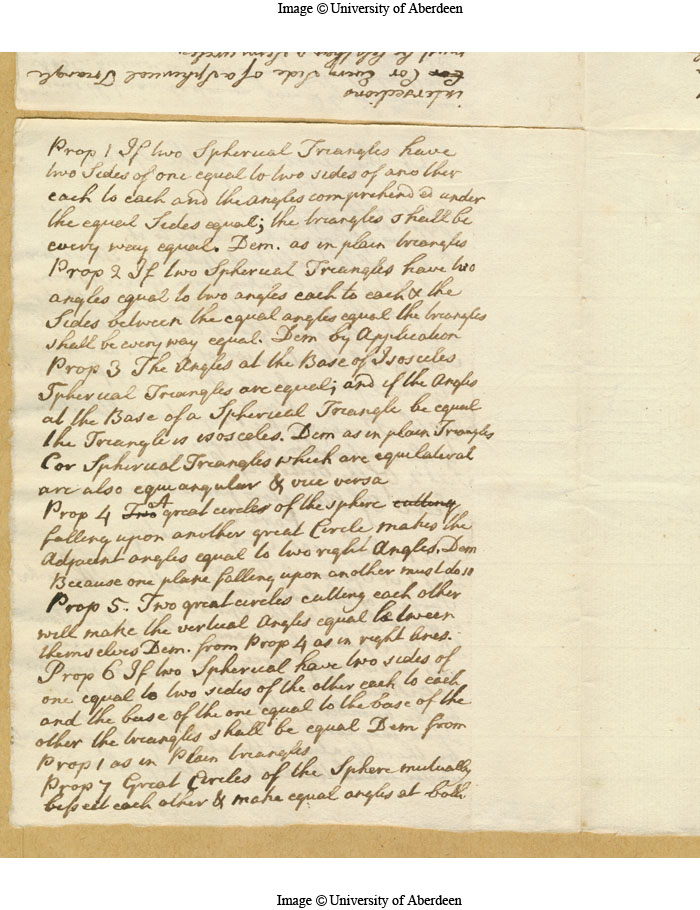 Image © University of Aberdeen
must be less than a Semicircle
Cor Cor Every Side of a Spherical Triangle
intersections
Prop 1 If two Spherical Triangles have
two Sides of one equal to two sides of another
each to each and the angles comprehended under
the equal Sides equal; the triangles shall be
every way equal. Dem. as in plain triangles
Prop 2 If two Spherical Triangles have two
angles equal to two angles each to each & the
Sides between the equal angles equal the triangles
shall be every way equal. Dem by Application
Prop 3 The Angles at the Base of Isosceles
Spherical Triangles are equal; and if the Angles
at the Base of a Spherical Triangle be equal
the Triangle is isosceles. Dem as in plain Triangles
Cor Spherical Triangles which are equilateral
are also equiangular & vice versa
Prop 4 Two A great circles of the sphere cutting
falling upon another great Circle makes the
Adjacent angles equal to two right Angles. Dem
Because one plane falling upon another must do so
Prop 5. Two great circles cutting each other
will make the vertical Angles equal between
themselves Dem. from Prop 4 as in right lines.
Prop 6 If two Spherical have two sides of
one equal to two sides of the other each to each
and the base of the one equal to the base of the
other the triangles shall be equal Dem from
Prop 1 as in Plain triangles
Prop 7 Great Circles of the Sphere mutually
bissect each other & make equal angles at both
Image © University of Aberdeen